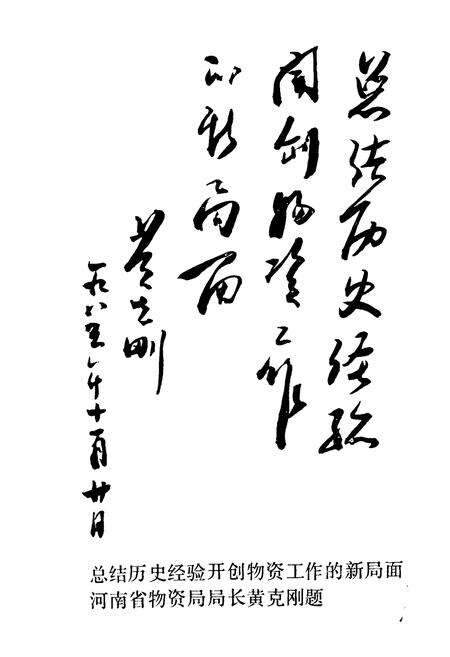 总结历史经验
開创物资工作
的新局面
黄克刚
一九八五年十一月廿日
总结历史经验开创物资工作的新局面
河南省物资局局长黄克刚题